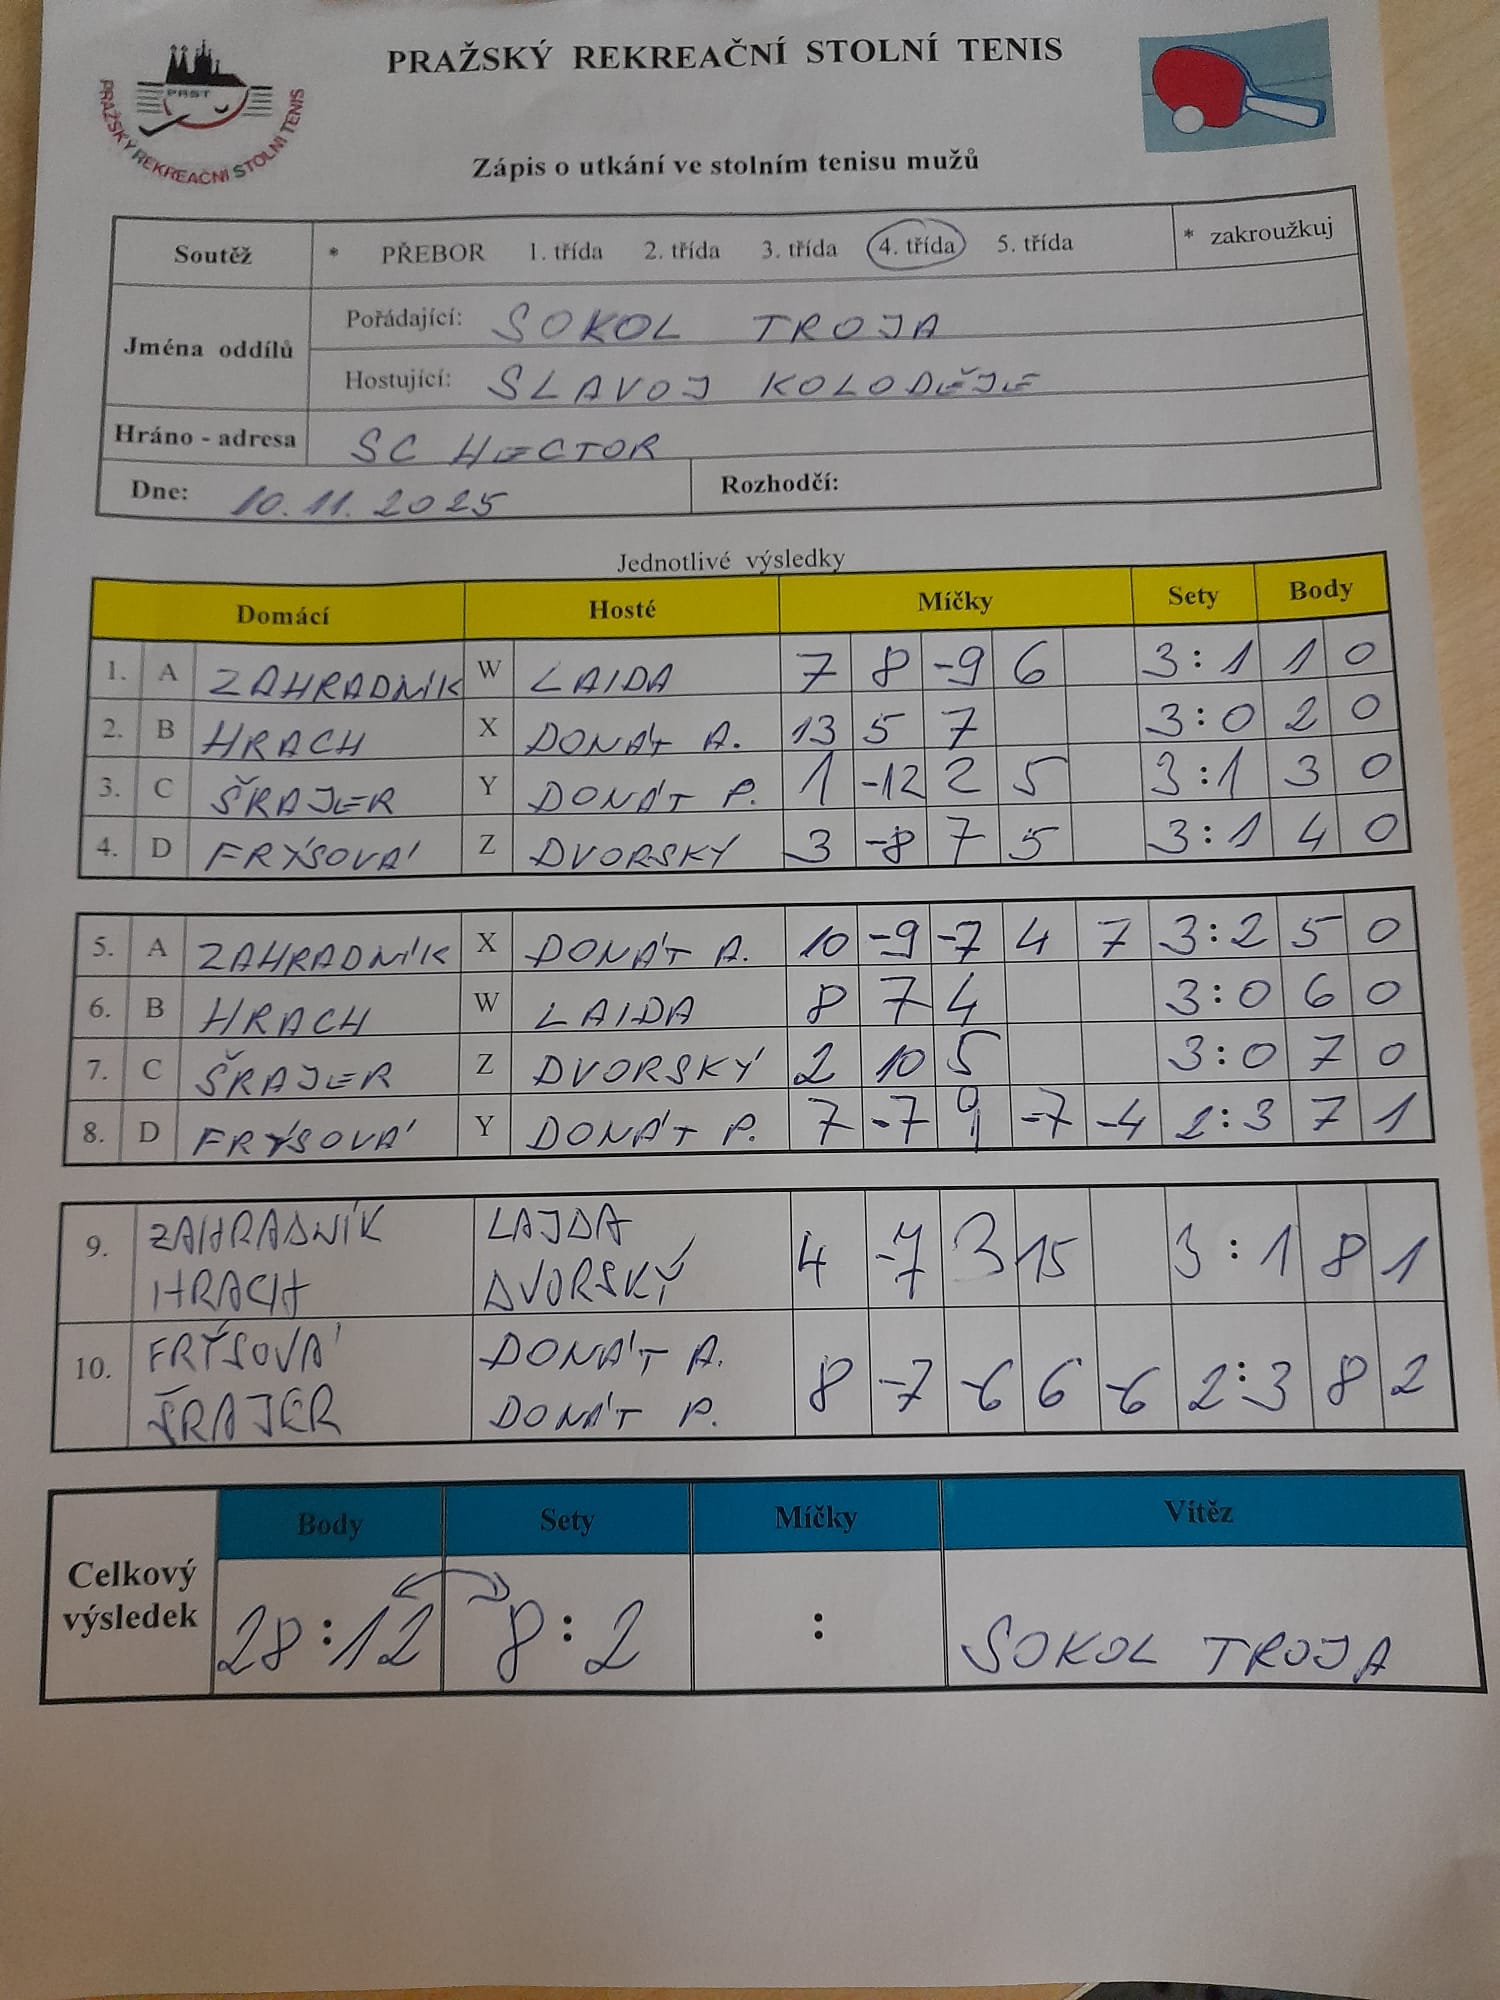 PRAŽSKÝ REKREAČNÍ STOLNÍ TENIS
PRST
PRAŽSKÝ REKREAČNÍ STOLNÍ TENIS
Zápis o utkání ve stolním tenisu mužů
Soutěž * PŘEBOR 1. třída 2. třída 3. třída 4. třída 5. třída * zakroužkuj
Jména oddílů
Pořádající: SOKOL TROJA
Hostující: SLAVOJ KOLODĚJE
Hráno - adresa SC HECTOR
Dne: 10.11.2025 Rozhodčí:
Jednotlivé výsledky
Domácí Hosté Míčky Sety Body
1. A ZAHRADNÍK W LAIDA 7 8 -9 6 3:1 1 0
2. B HRACH X DONÁT A. 13 5 7 3:0 2 0
3. C ŠRAJER Y DONÁT P. 1 -12 2 5 3:1 3 0
4. D FRÝSOVÁ Z DVORSKÝ 3 -8 7 5 3:1 4 0
5. A ZAHRADNÍK X DONÁT A. 10 -9 -7 4 7 3:2 5 0
6. B HRACH W LAIDA 8 7 4 3:0 6 0
7. C ŠRAJER Z DVORSKÝ 2 10 5 3:0 7 0
8. D FRÝSOVÁ Y DONÁT P. 7 -7 9 -7 -4 2:3 7 1
9. ZAHRADNÍK LAJDA 4 -7 3 15 3:1 8 1
HRACH DVORSKÝ
10. FRÝSOVÁ DONÁT A. 8 -7 -6 6 -6 2:3 8 2
ŠRAJER DONÁT P.
Body Sety Míčky Vítěz
Celkový výsledek 28:12 8:2 : SOKOL TROJA